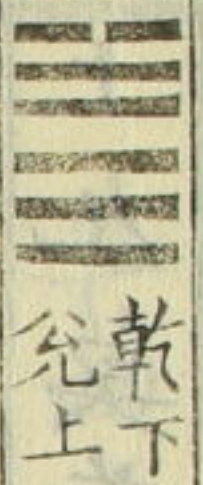 乾下
兌上